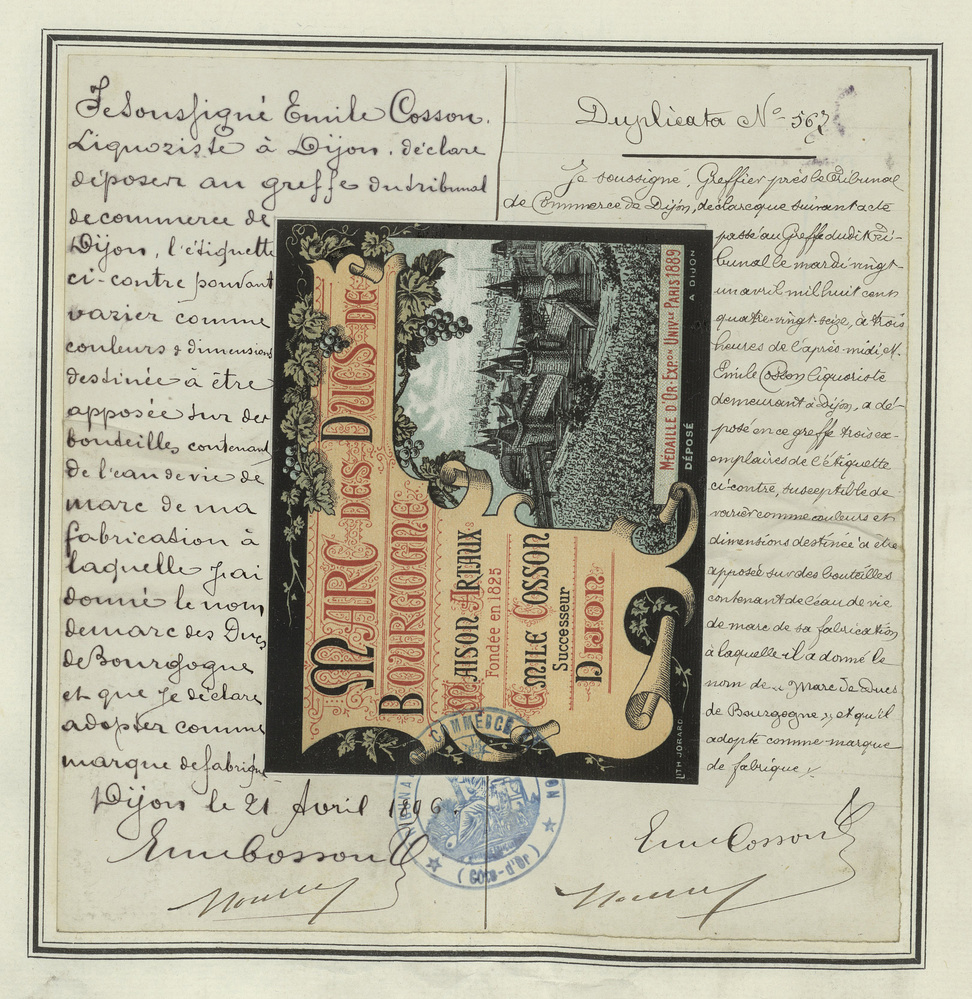 Je soussigné Emile Cosson.
Liquoriste à Dijon, déclare
déposer au greffe du tribunal
de commerce de
Dijon, l'étiquette
ci-contre pouvant
varier comme
couleurs & dimensions
destinée à être
apposée sur des
bouteilles contenant
de l'eau de vie de
marc de ma
fabrication à
laquelle j'ai
donné le nom
de marc des Ducs
de Bourgogne
et que je déclare
adopter comme
marque de fabrique
Dijon le 21 Avril 1896.
Emile Cosson
Duplicata No 567
Je soussigné, Greffier près le Tribunal
de Commerce de Dijon, déclare que suivant acte
passé au Greffe dudit Tri-
bunal le mardi vingt
un avril mil huit cent
quatre-vingt-seize, à trois
heures de l'après-midi M.
Emile Cosson liquoriste
demeurant à Dijon, a dé-
posé en ce greffe trois ex-
emplaires de l'étiquette
ci-contre, susceptible de
varier comme couleurs et
dimensions destinée à être
apposée sur des bouteilles
contenant de l'eau de vie
de marc de sa fabrication
à laquelle il a donné le
nom de « Marc de Ducs
de Bourgogne », et qu'il
adopte comme marque
de fabrique.
Emile Cosson
MARC DES DUCS DE
BOURGOGNE
MAISON ARTAUX
Fondée en 1825
EMILE COSSON
Successeur
DIJON
MÉDAILLE D'OR·EXPON UNIVLE PARIS 1889
DÉPOSÉ
A DIJON
LITH. JOBARD
COMMERCE
(Côte-d'Or)